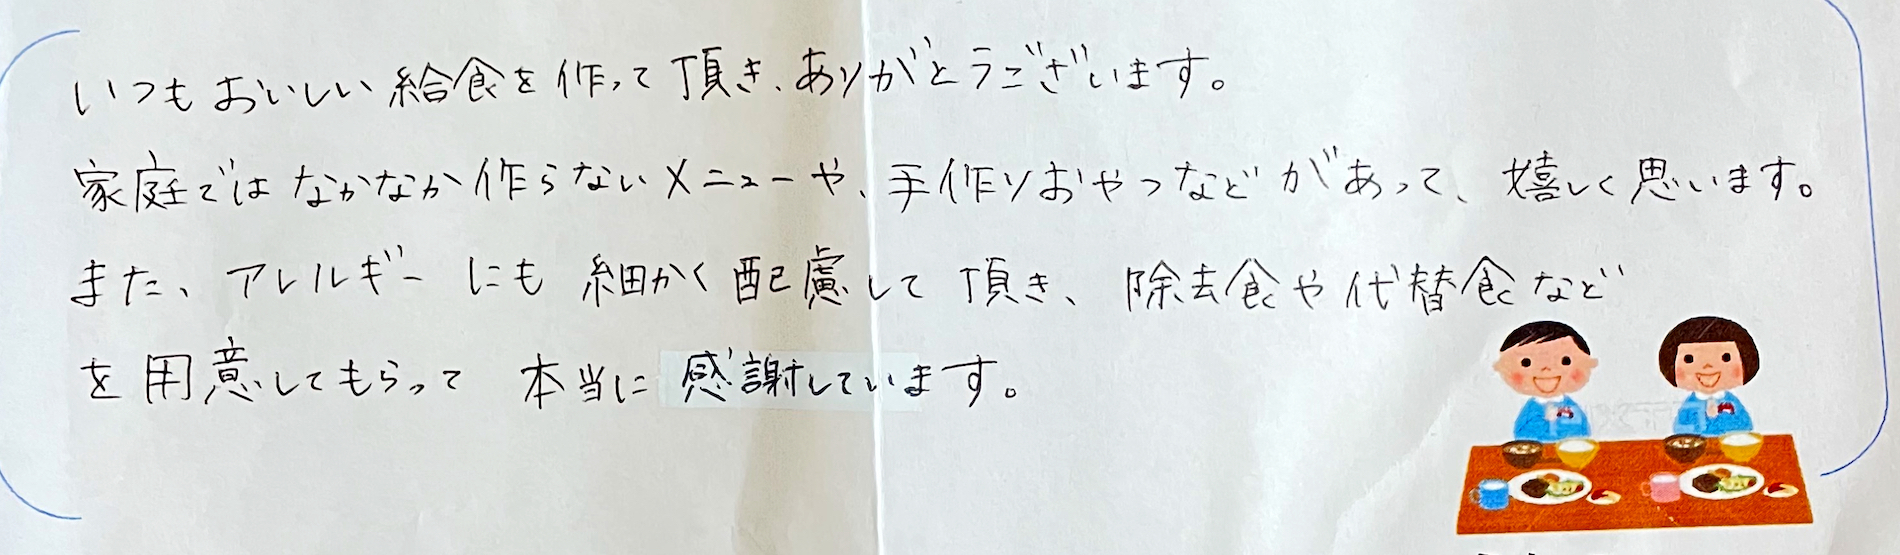 いつもおいしい給食を作って頂き、ありがとうございます。
家庭ではなかなか作らないメニューや、手作りおやつなどがあって、嬉しく思います。
また、アレルギーにも細かく配慮して頂き、除去食や代替食など
を用意してもらって本当に感謝しています。